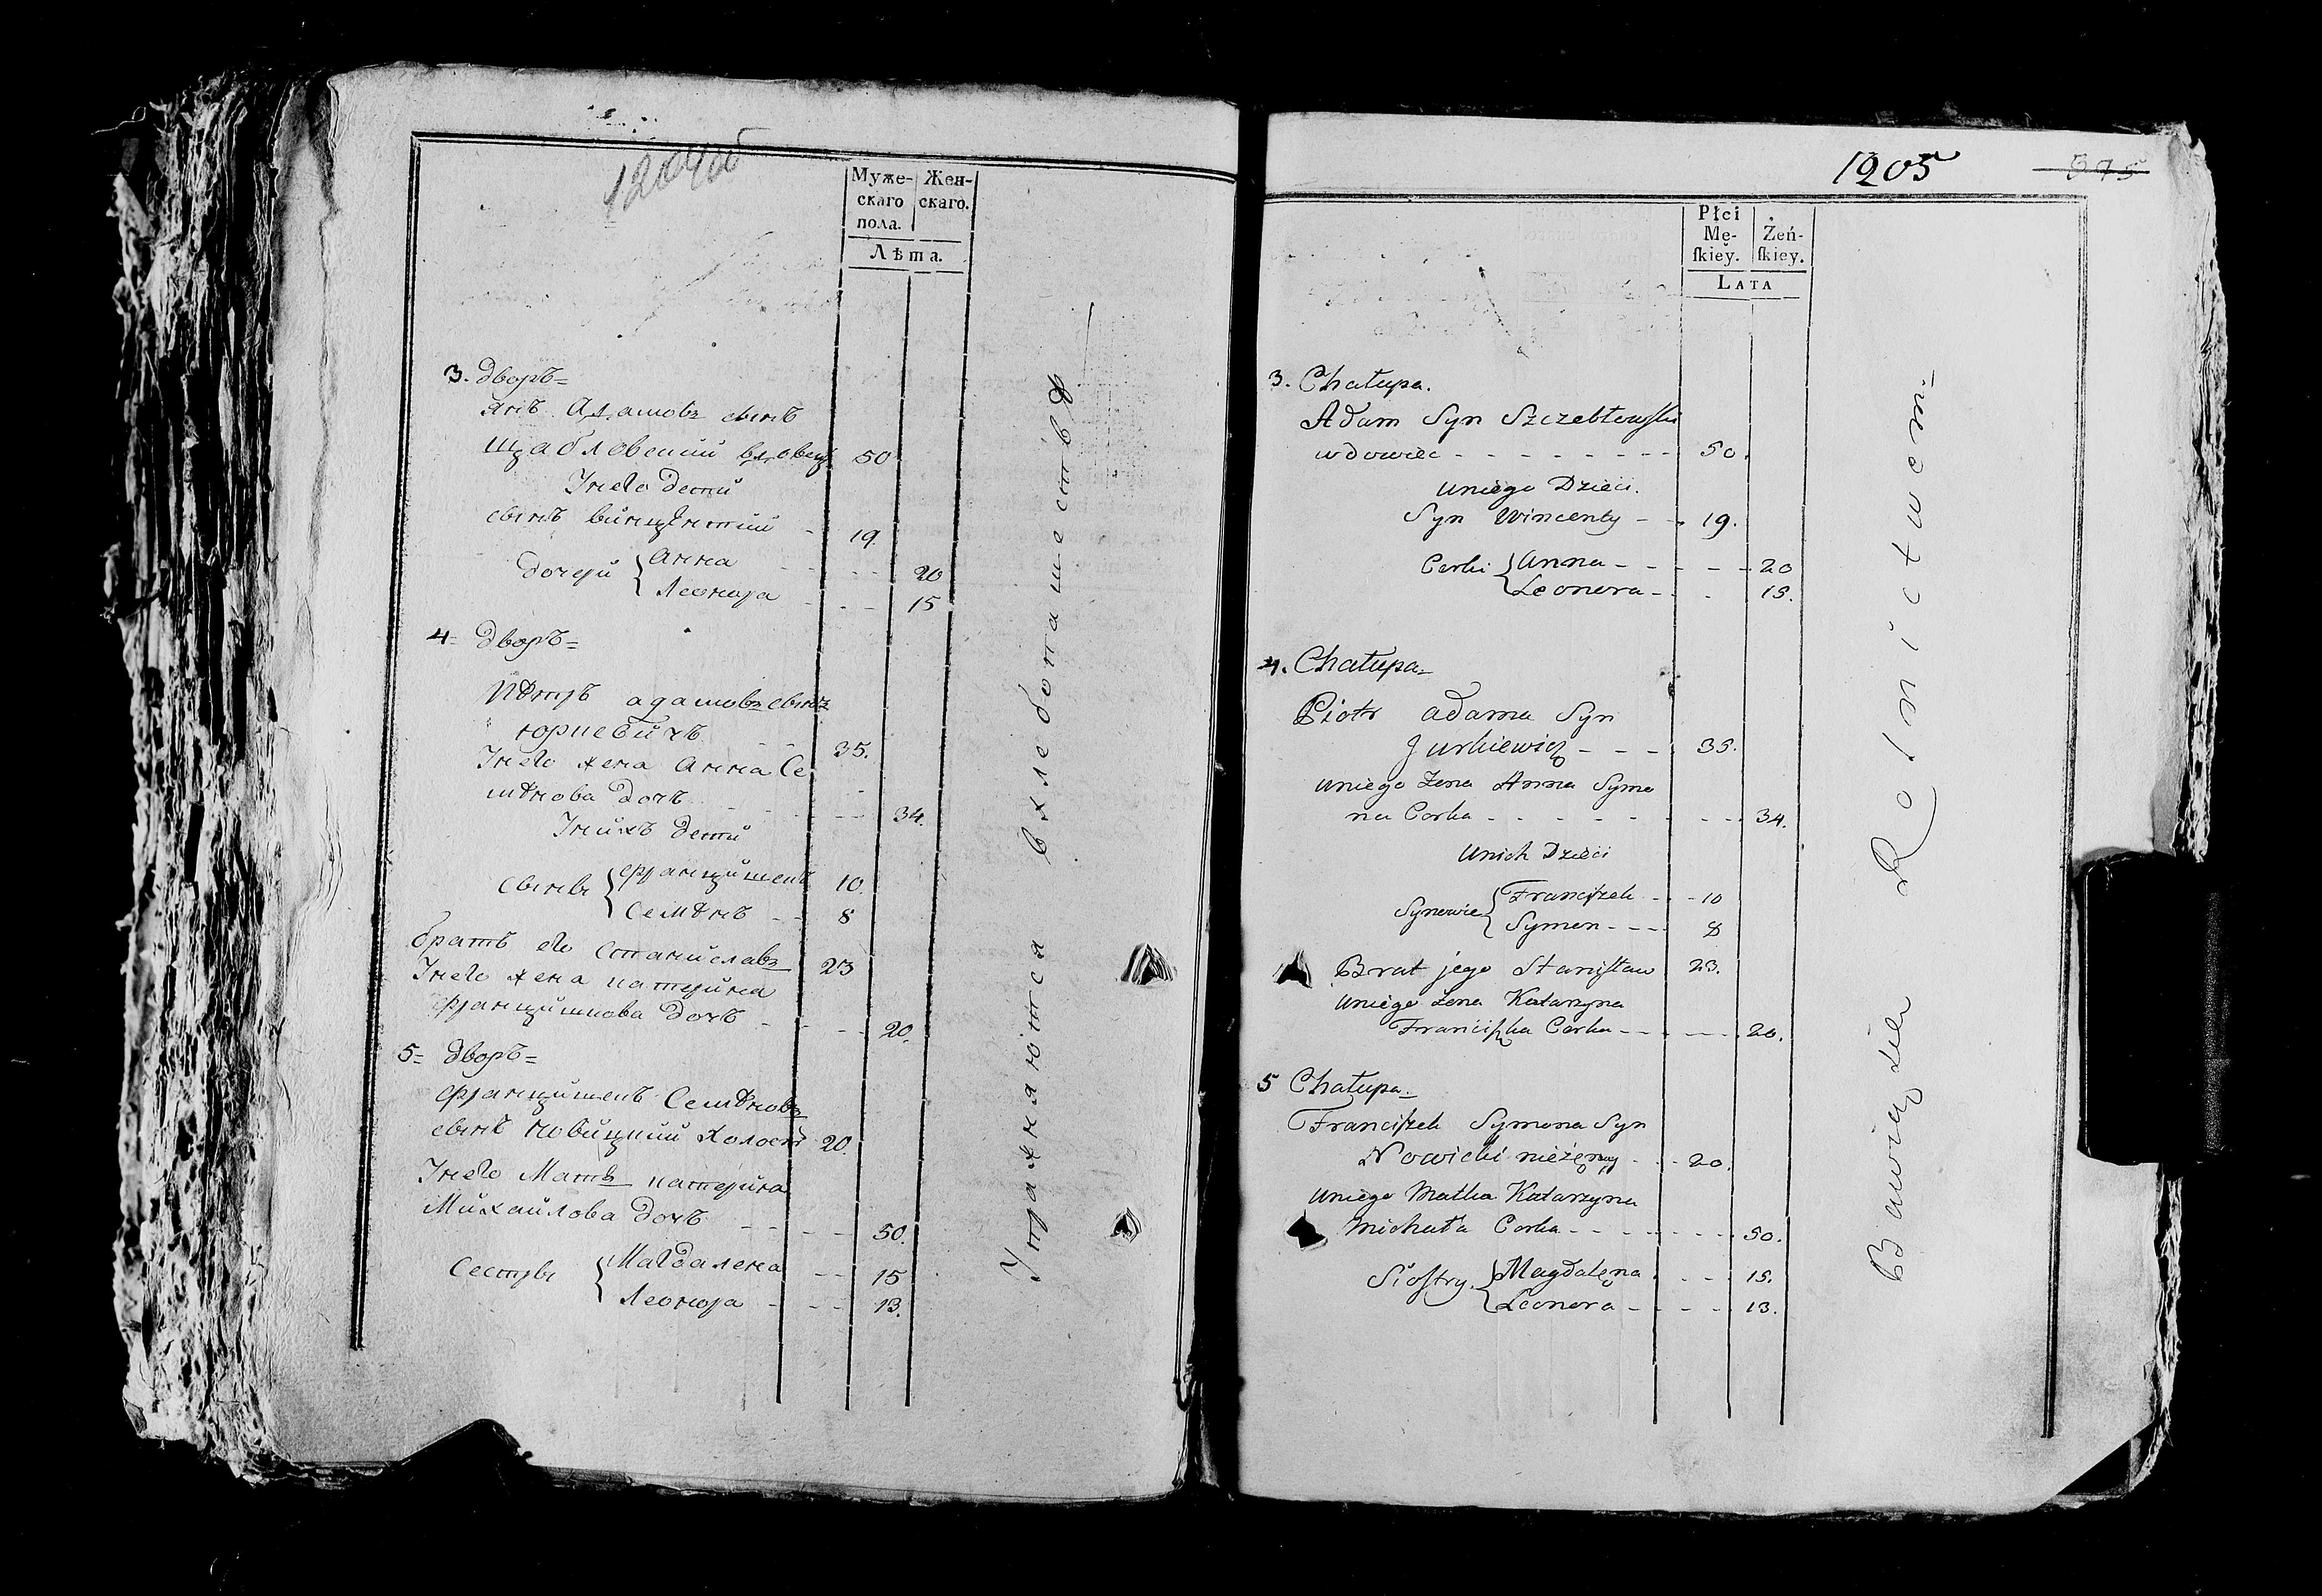 1204об
Муже- Жен-
скаго скаго.
пола.
Лѣта.
3. Дворъ=
янъ Адамовъ сынъ
щабловский вдовецъ 50
Унего дети
сынъ винцентий - 19.
дочери Анна - - - 20
Леонора - - - 15
4= Дворъ=
Петръ адамовъ сынъ
юркевичъ - - 35.
Унего жена Анна Се
менова дочь - - - 34.
Унихъ дети
сыны францишекъ 10.
семенъ - - 8
братъ его Станиславъ 23
Унего жена катерина
францишкова дочь - - - 20.
5= Дворъ=
францишекъ Семеновъ
сынъ новицкий холостъ 20.
Унего Мать катерина
Михайлова дочь - - - 50.
Сестры Магдалена - - 15
Леонора - - - 13.
Упражняются вхлебопашестве
1205 975
Płci Żeń-
Mę- ſkiey.
ſkiey.
LATA
3. Chałupa.
Adam Syn Szczebłowski
wdowiec - - - - - - - - 50.
uniego Dzieci.
Syn Wincenty - - 19.
Corki Anna - - - - - 20
Leonora - - 15.
4. Chałupa=
Piotr adama Syn
Jurkiewicz - - - 35.
uniego Żena Anna Symo
na Corka - - - - - - - - 34.
Unich Dzieci
Synowie Franciſzek - - 10
Symon - - - 8
Brat jego Staniſław 23.
uniego żena Katarzyna
Franciſzka Corka - - - - - 20.
5 Chałupa=
Franciſzek Symona Syn
Nowicki nieżenny - - 20.
uniego Matka Katarzyna
Michała Corka - - - - - - - 50.
Sioſtry. Magdalena - - - 15.
Leonora - - - - 13.
Bawią sie Rolnictwem=